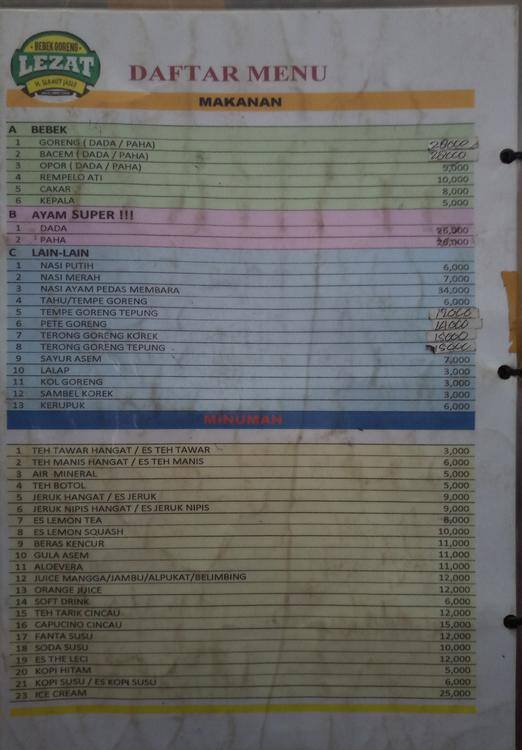 BEBEK GORENG
LEZAT
H. SLAMET JASLY
DAFTAR MENU
MAKANAN
A BEBEK
1 GORENG ( DADA / PAHA) 28000
2 BACEM ( DADA / PAHA) 28000
3 OPOR ( DADA / PAHA) 9,000
4 REMPELO ATI 10,000
5 CAKAR 8,000
6 KEPALA 5,000
B AYAM SUPER !!!
1 DADA 26,000
2 PAHA 26,000
C LAIN-LAIN
1 NASI PUTIH 6,000
2 NASI MERAH 7,000
3 NASI AYAM PEDAS MEMBARA 34,000
4 TAHU/TEMPE GORENG 6,000
5 TEMPE GORENG TEPUNG 12000
6 PETE GORENG 14000
7 TERONG GORENG KOREK 15000
8 TERONG GORENG TEPUNG 15000
9 SAYUR ASEM 7,000
10 LALAP 3,000
11 KOL GORENG 3,000
12 SAMBEL KOREK 3,000
13 KERUPUK 6,000
MINUMAN
1 TEH TAWAR HANGAT / ES TEH TAWAR 3,000
2 TEH MANIS HANGAT / ES TEH MANIS 6,000
3 AIR MINERAL 5,000
4 TEH BOTOL 5,000
5 JERUK HANGAT / ES JERUK 9,000
6 JERUK NIPIS HANGAT / ES JERUK NIPIS 9,000
7 ES LEMON TEA 8,000
8 ES LEMON SQUASH 10,000
9 BERAS KENCUR 11,000
10 GULA ASEM 11,000
11 ALOEVERA 11,000
12 JUICE MANGGA/JAMBU/ALPUKAT/BELIMBING 12,000
13 ORANGE JUICE 12,000
14 SOFT DRINK 6,000
15 TEH TARIK CINCAU 12,000
16 CAPUCINO CINCAU 15,000
17 FANTA SUSU 12,000
18 SODA SUSU 10,000
19 ES THE LECI 12,000
20 KOPI HITAM 5,000
21 KOPI SUSU / ES KOPI SUSU 6,000
23 ICE CREAM 25,000